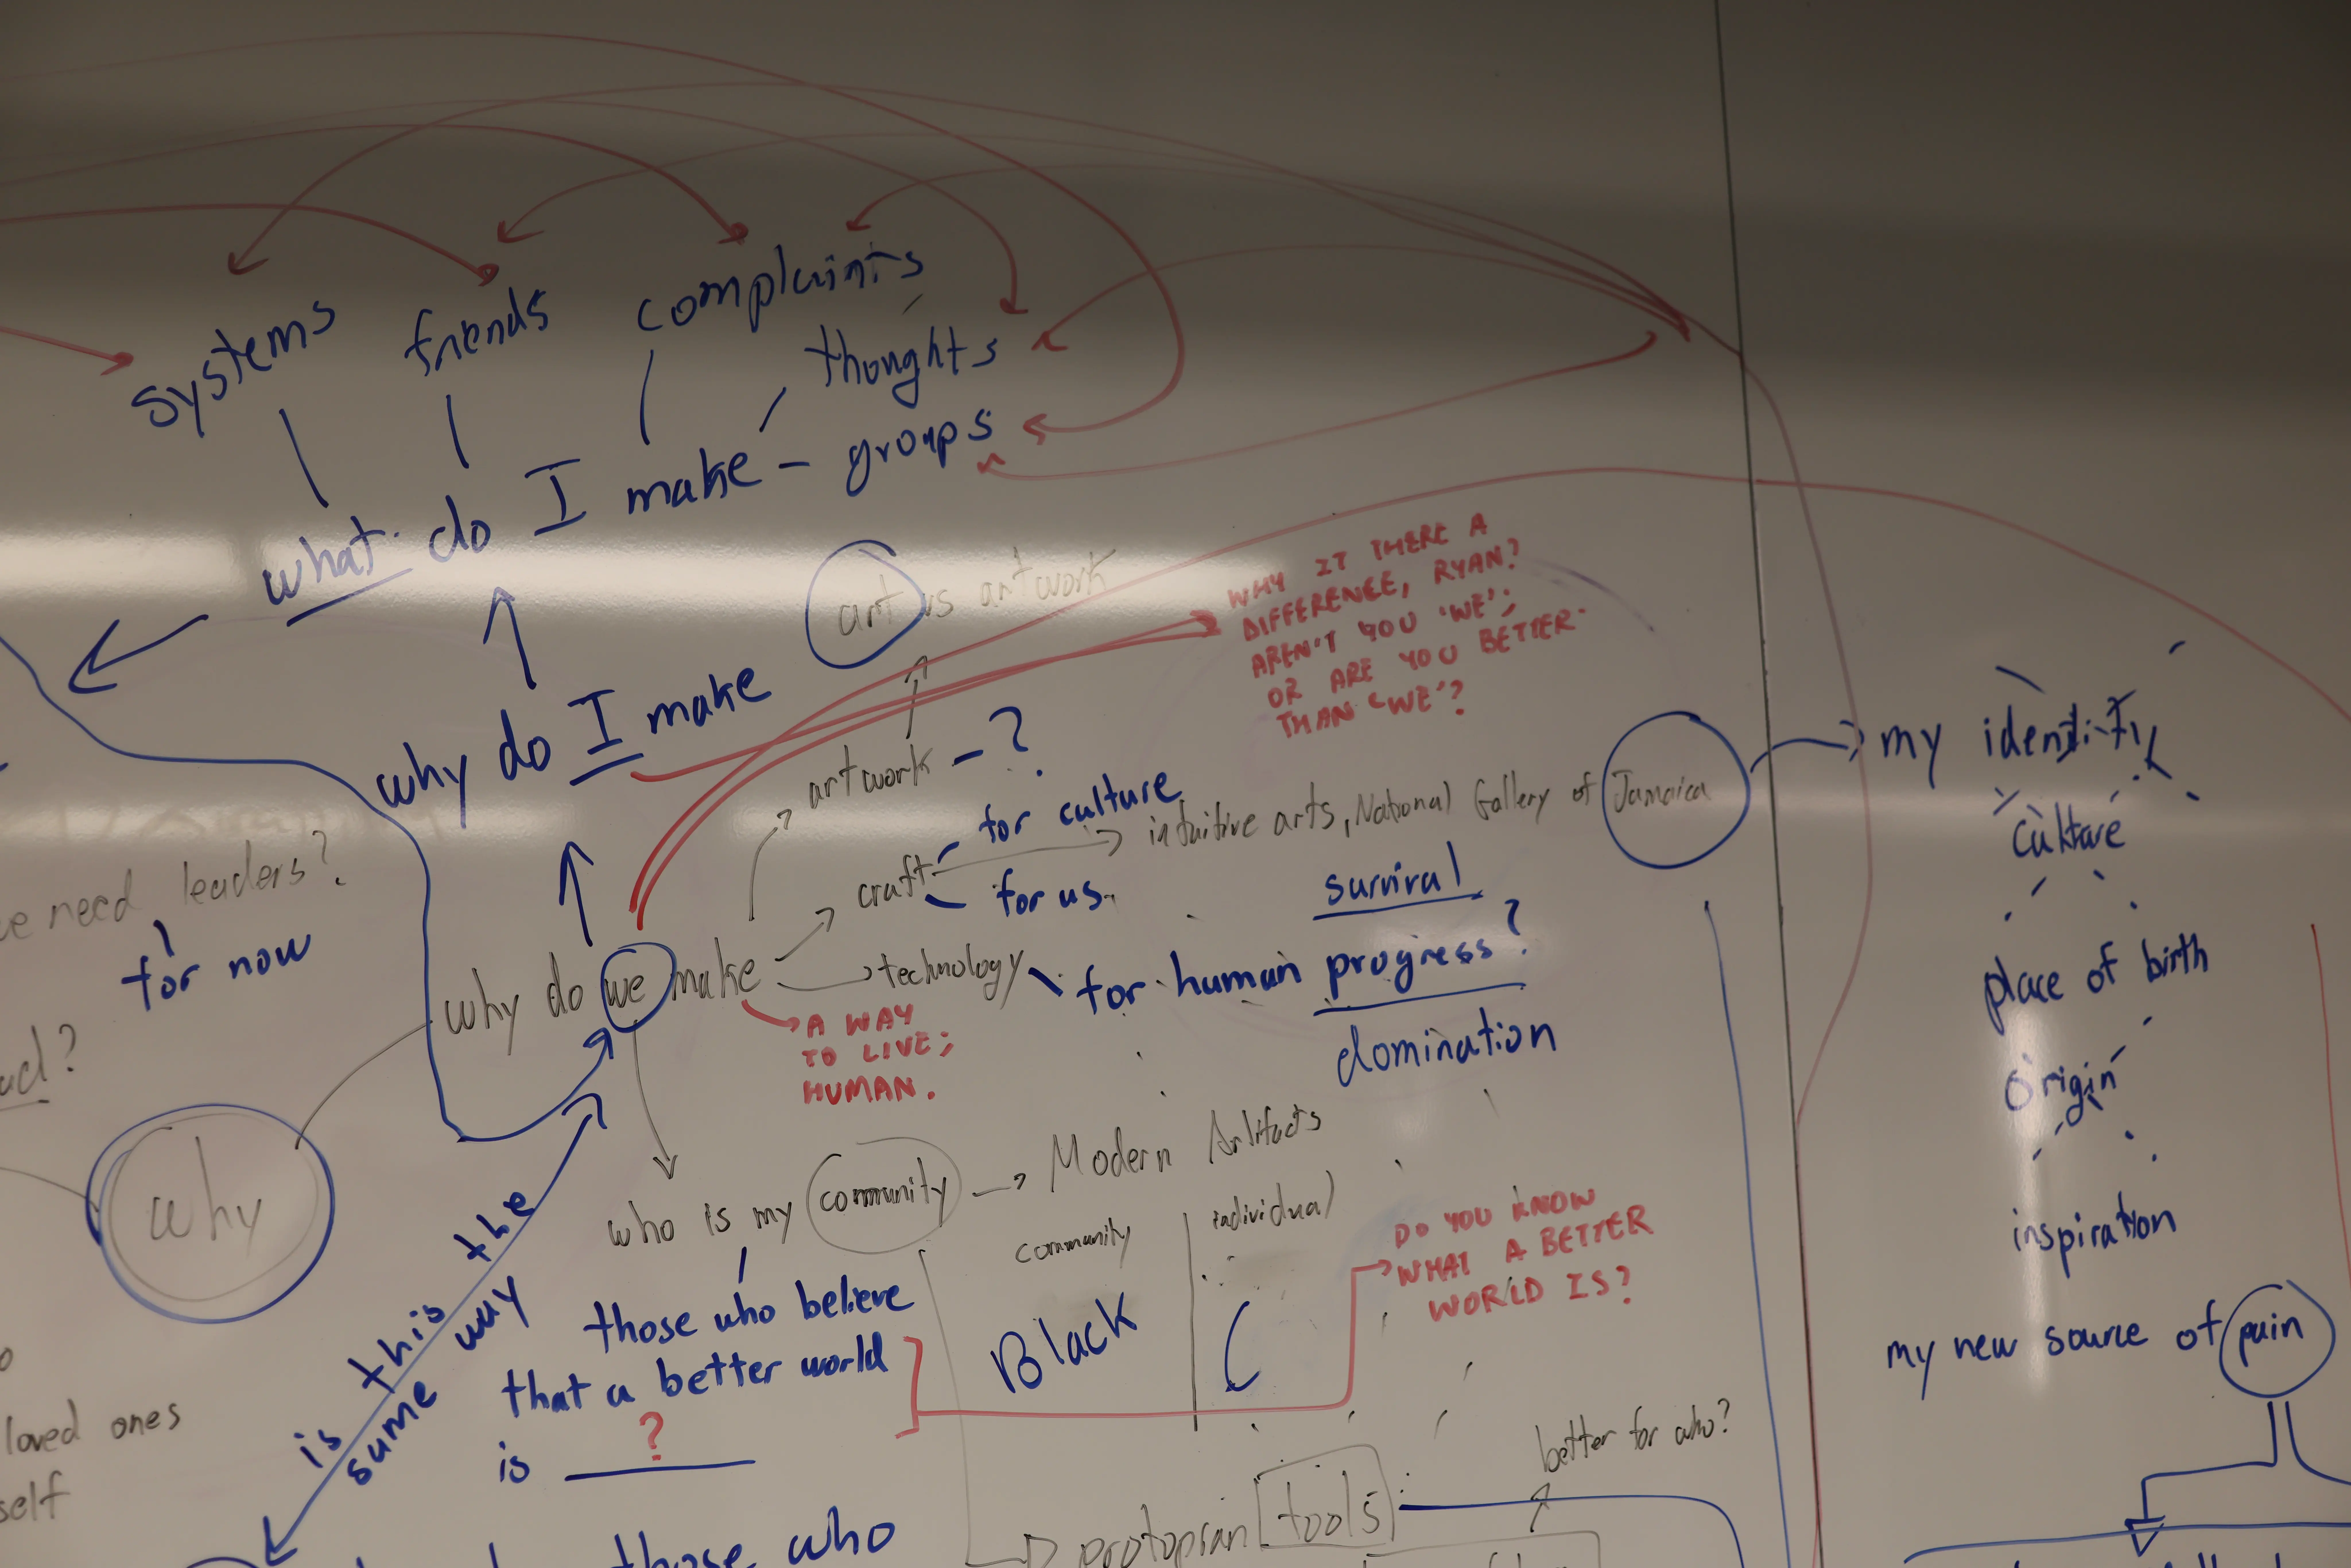 systems
friends
complaints
thonghts
what do I make - groups
art vs artwork
why do I make
WHY IT THERE A
DIFFERENCE, RYAN?
AREN'T YOU 'WE';
OR ARE YOU BETTER
THAN 'WE'?
artwork - ?
for culture
craft
intuitive arts, National Gallery of Jamaica
for us.
my identity
culture
place of birth
origin
inspiration
my new source of pain
need leaders?
for now
why do we make
technology
survival
for human progress?
domination
A WAY
TO LIVE;
HUMAN.
why
is this the
same way
who is my community
Modern Artifacts
community
individual
Black
DO YOU KNOW
WHAT A BETTER
WORLD IS?
those who believe
that a better world
is ?
loved ones
self
those who
protopian tools
better for who?